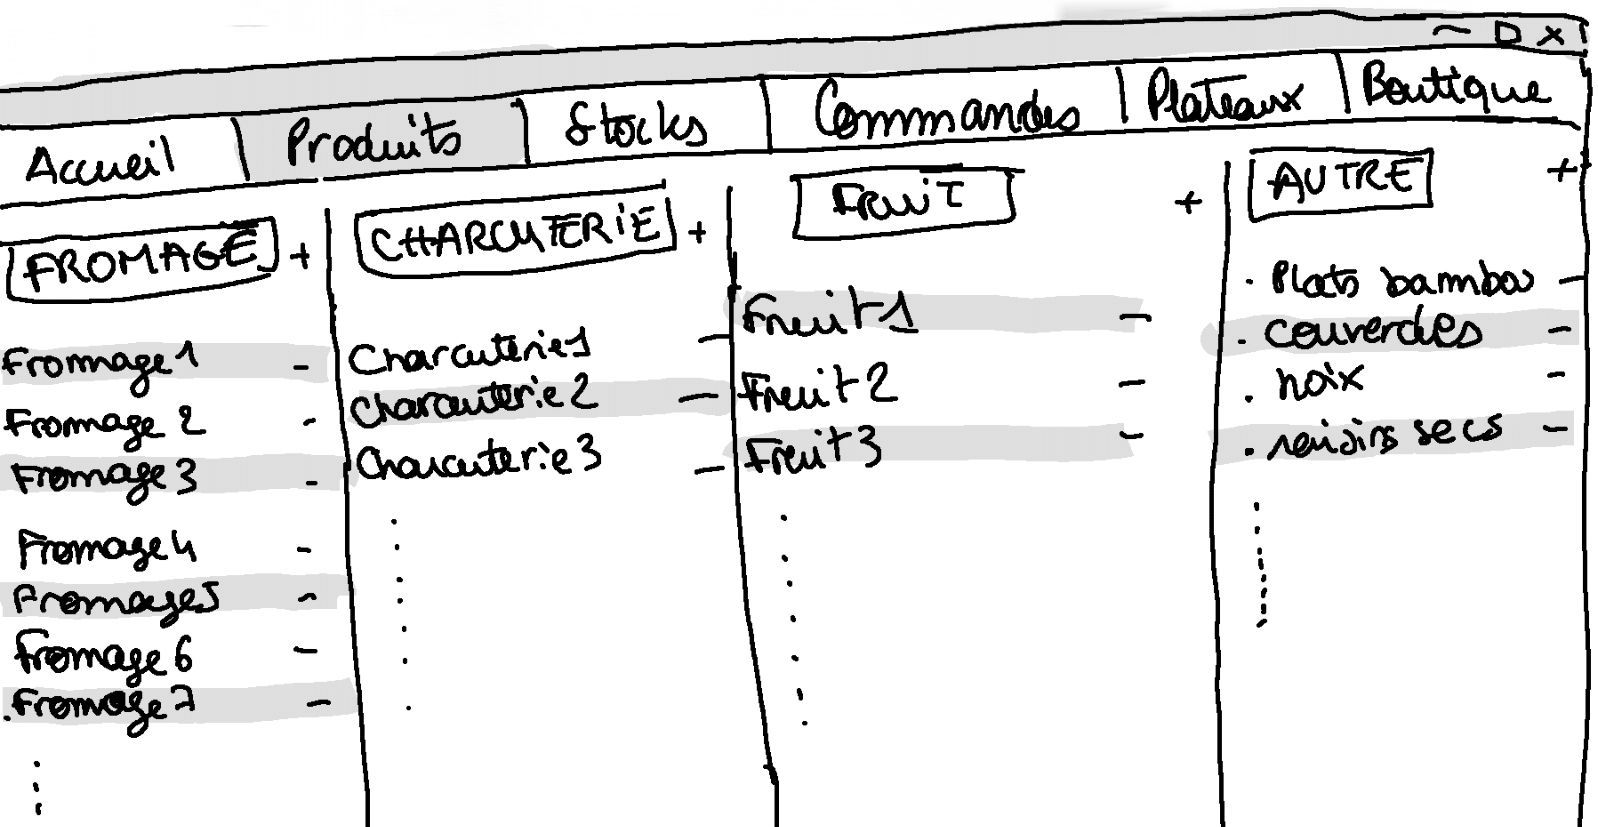 Accueil Produits Stocks Commandes Plateaux Boutique
FROMAGE +
Fromage 1 -
Fromage 2 -
Fromage 3 -
Fromage 4 -
Fromage 5 -
Fromage 6 -
Fromage 7 -
CHARCUTERIE +
Charcuterie 1 -
Charcuterie 2 -
Charcuterie 3 -
Fruit +
Fruit 1 -
Fruit 2 -
Fruit 3 -
AUTRE +
. Plats bambou -
. couvercles -
. noix -
. raisins secs -